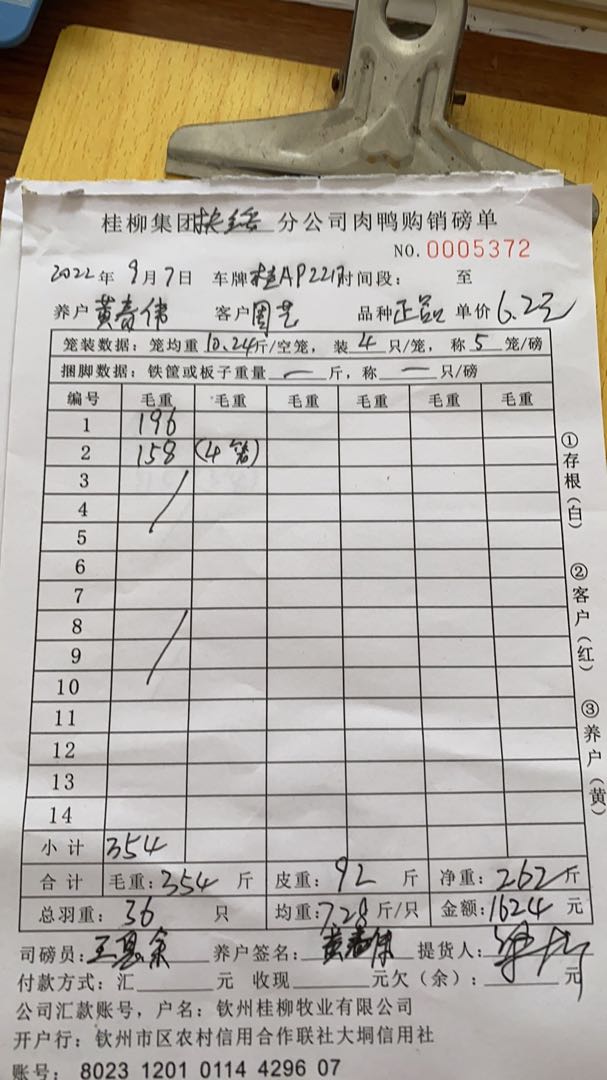 桂柳集团 分公司肉鸭购销磅单
NO.0005372
2022年 9月7日 车牌桂AP221 时间段: 至
养户 黄春伟 客户 周艺 品种 正品 单价 6.2元
笼装数据: 笼均重 10.24 斤/空笼, 装 4 只/笼, 称 5 笼/磅
捆脚数据: 铁筐或板子重量 — 斤, 称 — 只/磅
编号 毛重 毛重 毛重 毛重 毛重 毛重
1 196
2 158 (4笼)
3
4
5
6
7
8
9
10
11
12
13
14
小计 354
合计 毛重: 354 斤 皮重: 92 斤 净重: 262 斤
总羽重: 36 只 均重: 7.28 斤/只 金额: 1624 元
司磅员: 养户签名: 黄春伟 提货人:
付款方式: 汇 元 收现 元欠(余): 元
公司汇款账号, 户名: 钦州桂柳牧业有限公司
开户行: 钦州市区农村信用合作联社大垌信用社
账号: 8023 1201 0114 4296 07
①存根(白) ②客户(红) ③养户(黄)